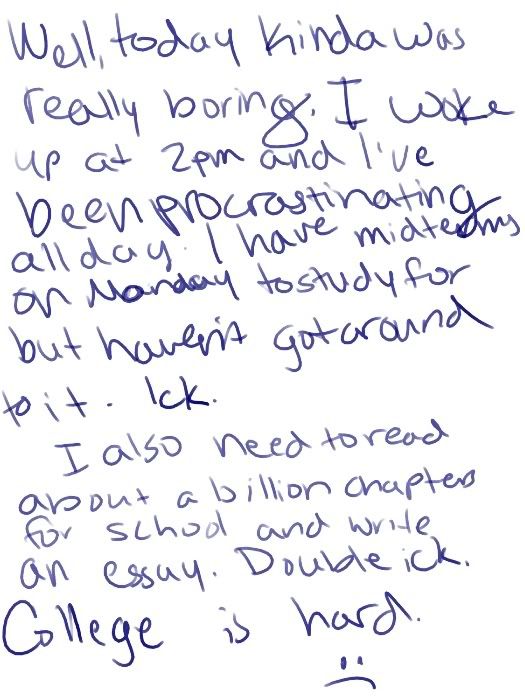 Well, today kinda was
really boring. I woke
up at 2pm and I've
been procrastinating
all day. I have midterms
on Monday to study for
but haven't got around
to it. Ick.
I also need to read
about a billion chapters
for school and write
an essay. Double ick.
College is hard.
:(